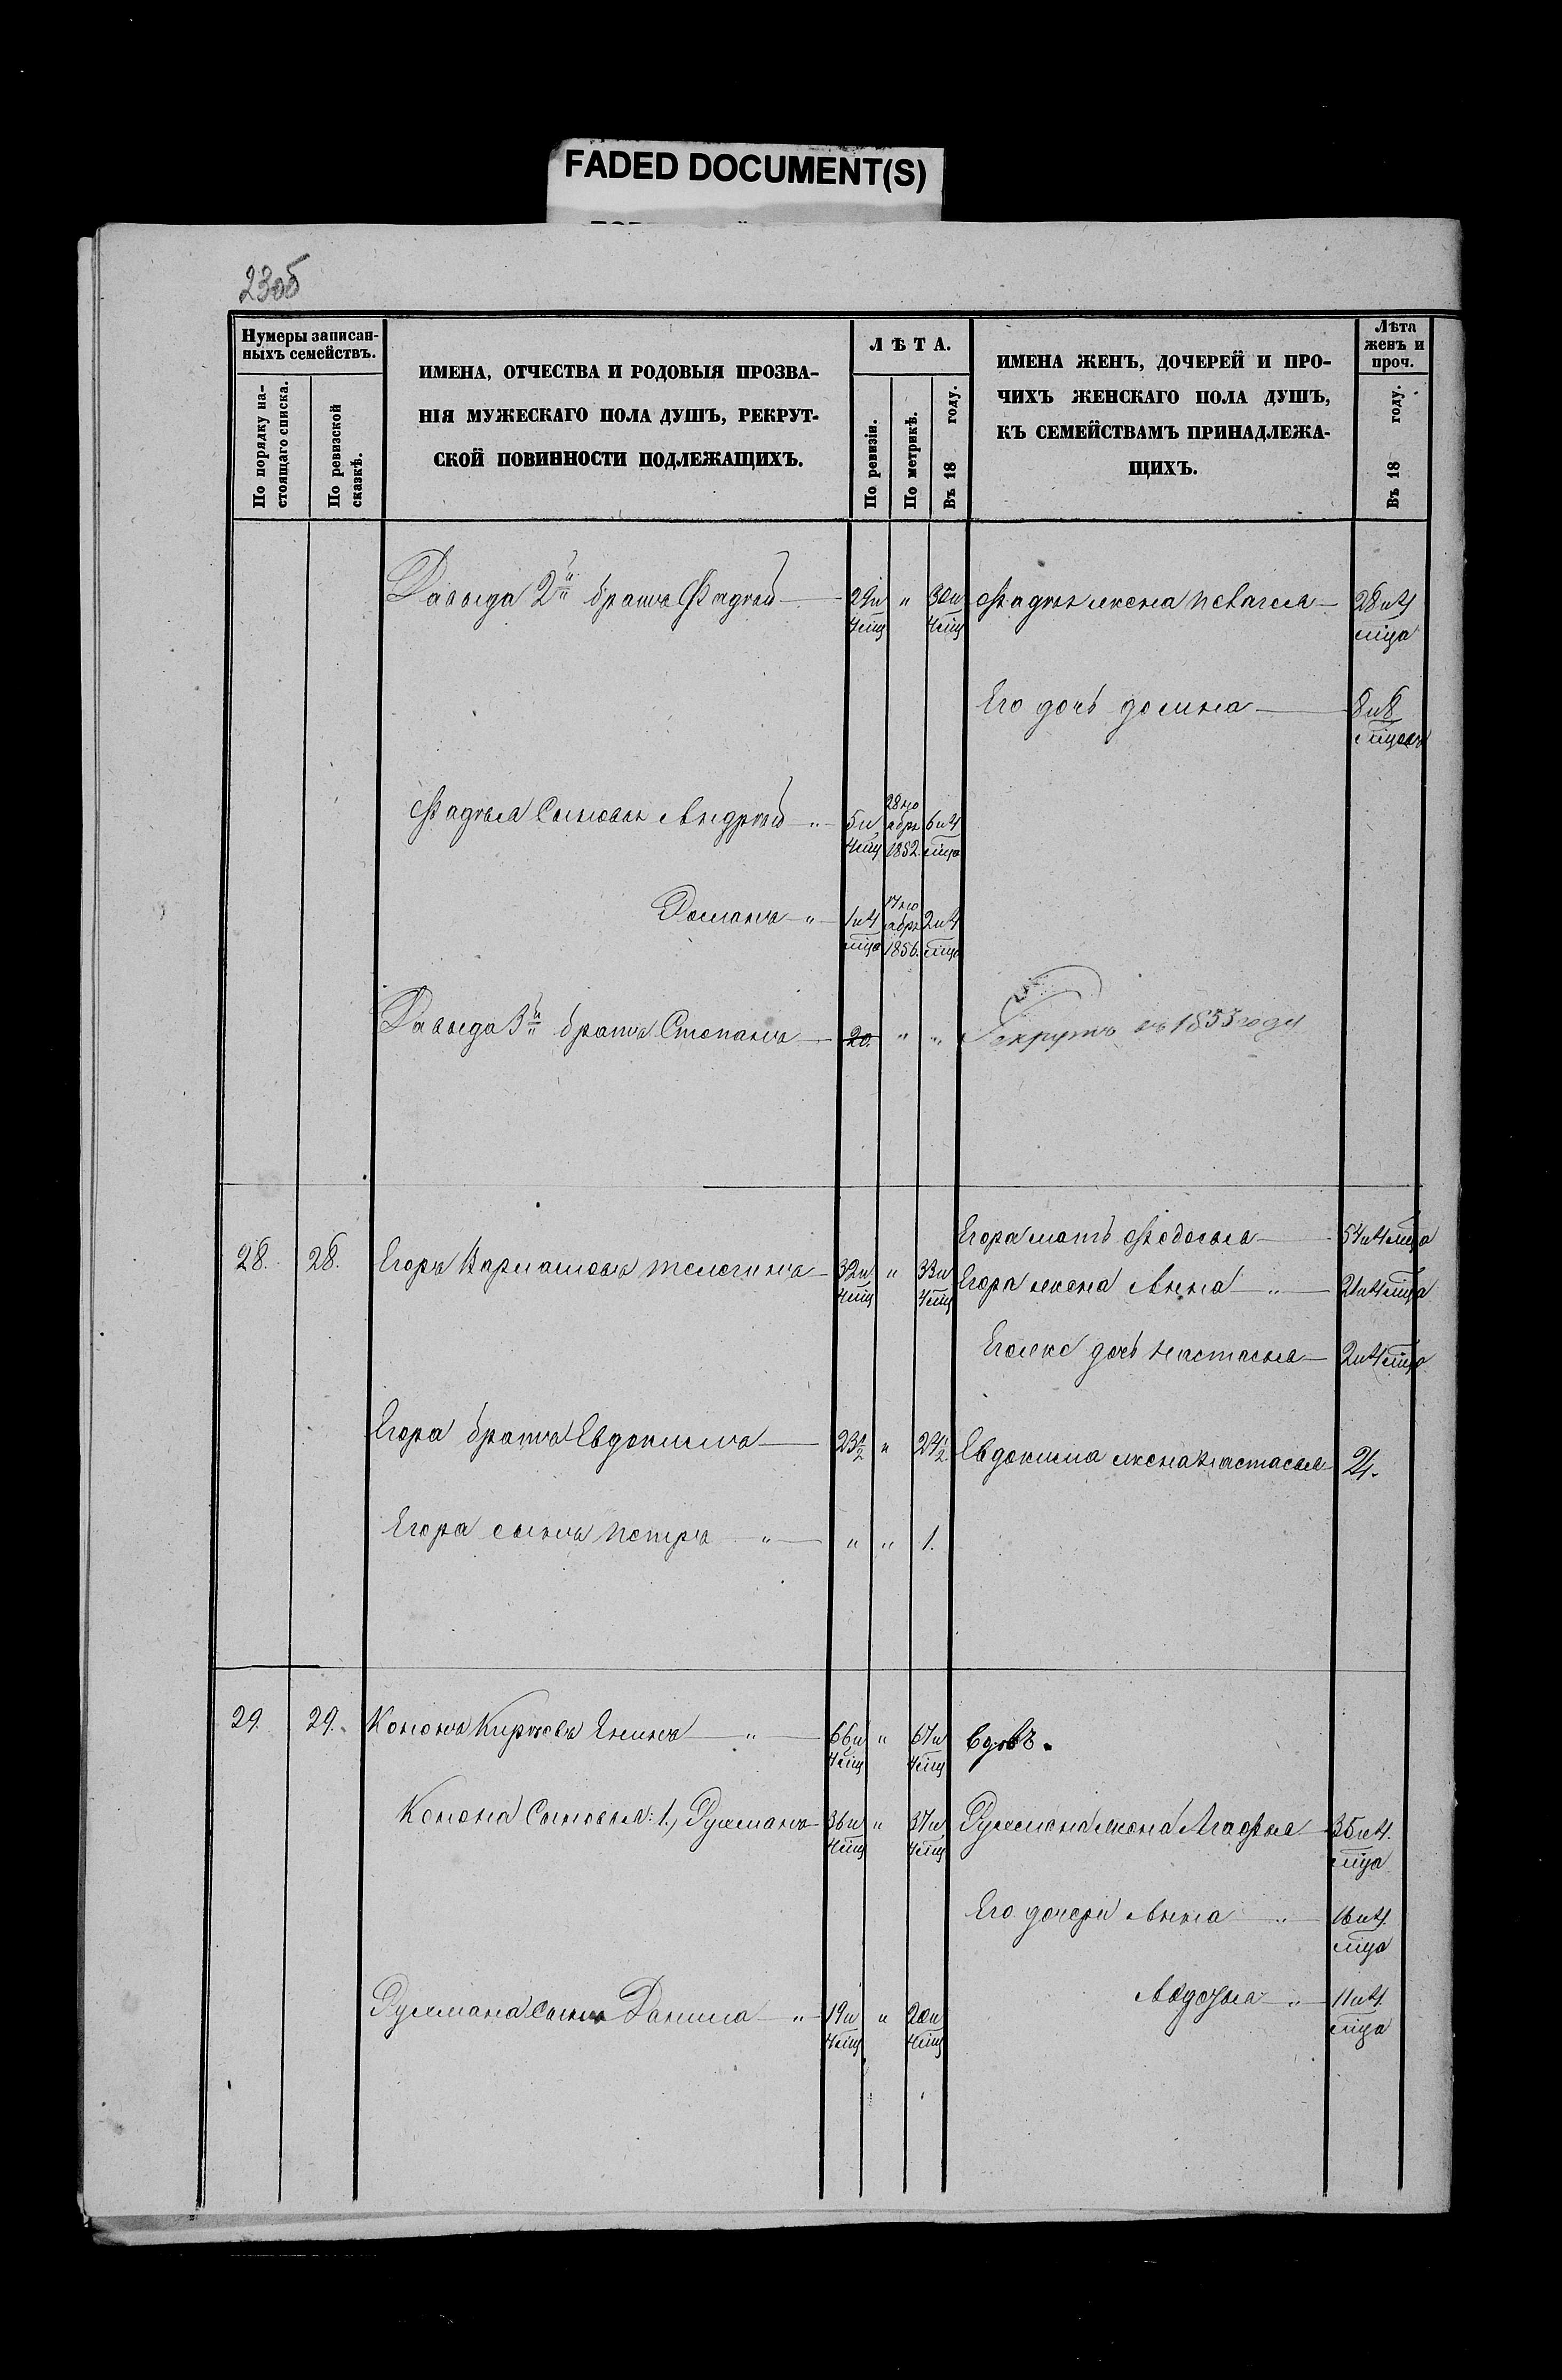 FADED DOCUMENT(S)
23об
Нумеры записан-
ныхъ семействъ.
По порядку на-
стоящаго списка.
По ревизской
сказкѣ.
ИМЕНА, ОТЧЕСТВА И РОДОВЫЯ ПРОЗВА-
НІЯ МУЖЕСКАГО ПОЛА ДУШЪ, РЕКРУТ-
СКОЙ ПОВИННОСТИ ПОДЛЕЖАЩИХЪ.
ЛѢТА.
По ревизіи.
По метрикѣ.
Въ 18 году.
ИМЕНА ЖЕНЪ, ДОЧЕРЕЙ И ПРО-
ЧИХЪ ЖЕНСКАГО ПОЛА ДУШЪ,
КЪ СЕМЕЙСТВАМЪ ПРИНАДЛЕЖА-
ЩИХЪ.
Лѣта
женъ и
проч.
Въ 18 году.
Давыда 2й братъ Фадѣй 29и 4мц " 30и 4мц Фадѣя жена Пелагея 28и4 мца
Его дочь Домна 8и8 мцовъ
Фадѣя сыновья Андрѣй " 5и 4мц 28но абря 1852 6и4 мца
Романъ " 1и4 мца 17но абря 1856. 2и4 мца
Давыда 3й братъ Степанъ 20. " " Рекрутъ въ 1855 году
28. 28. Егора мать Федосья 54и4мца
Егоръ Варламовъ Телегинъ 32и 4мц " 33и 4мц Егора жена Анна " 21и4мца
Его же дочь Настасья 2и4мца
Егора братъ Евдокимъ 23½ " 24½ Евдокима жена Настасья 24.
Егора сынъ Петръ " " " 1.
29. 29. Кононъ Кирѣевъ Енинъ " 66и 4мц " 67и 4мц вдовъ.
Конона сыновья: 1., Ружманъ 36и 4мц " 37и 4мц Ружмана жена Агафья 35и4. мца
Его дочери Анна " 16и4. мца
Авдотья " 11и4. мца
Ружмана сынъ Данила " 19и 4мц " 20и 4мц